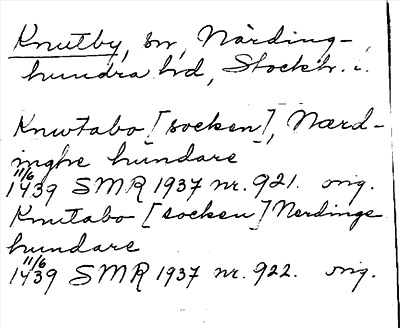 Knutby, sn, Närding-
hundra hd, Stockh. l.
Knwtabo [socken], Nærd-
inghe hundare
11/6
1439 SMR 1937 nr. 921. orig.
Knutabo [socken] Nerdinge
hundare
11/6
1439 SMR 1937 nr. 922. orig.